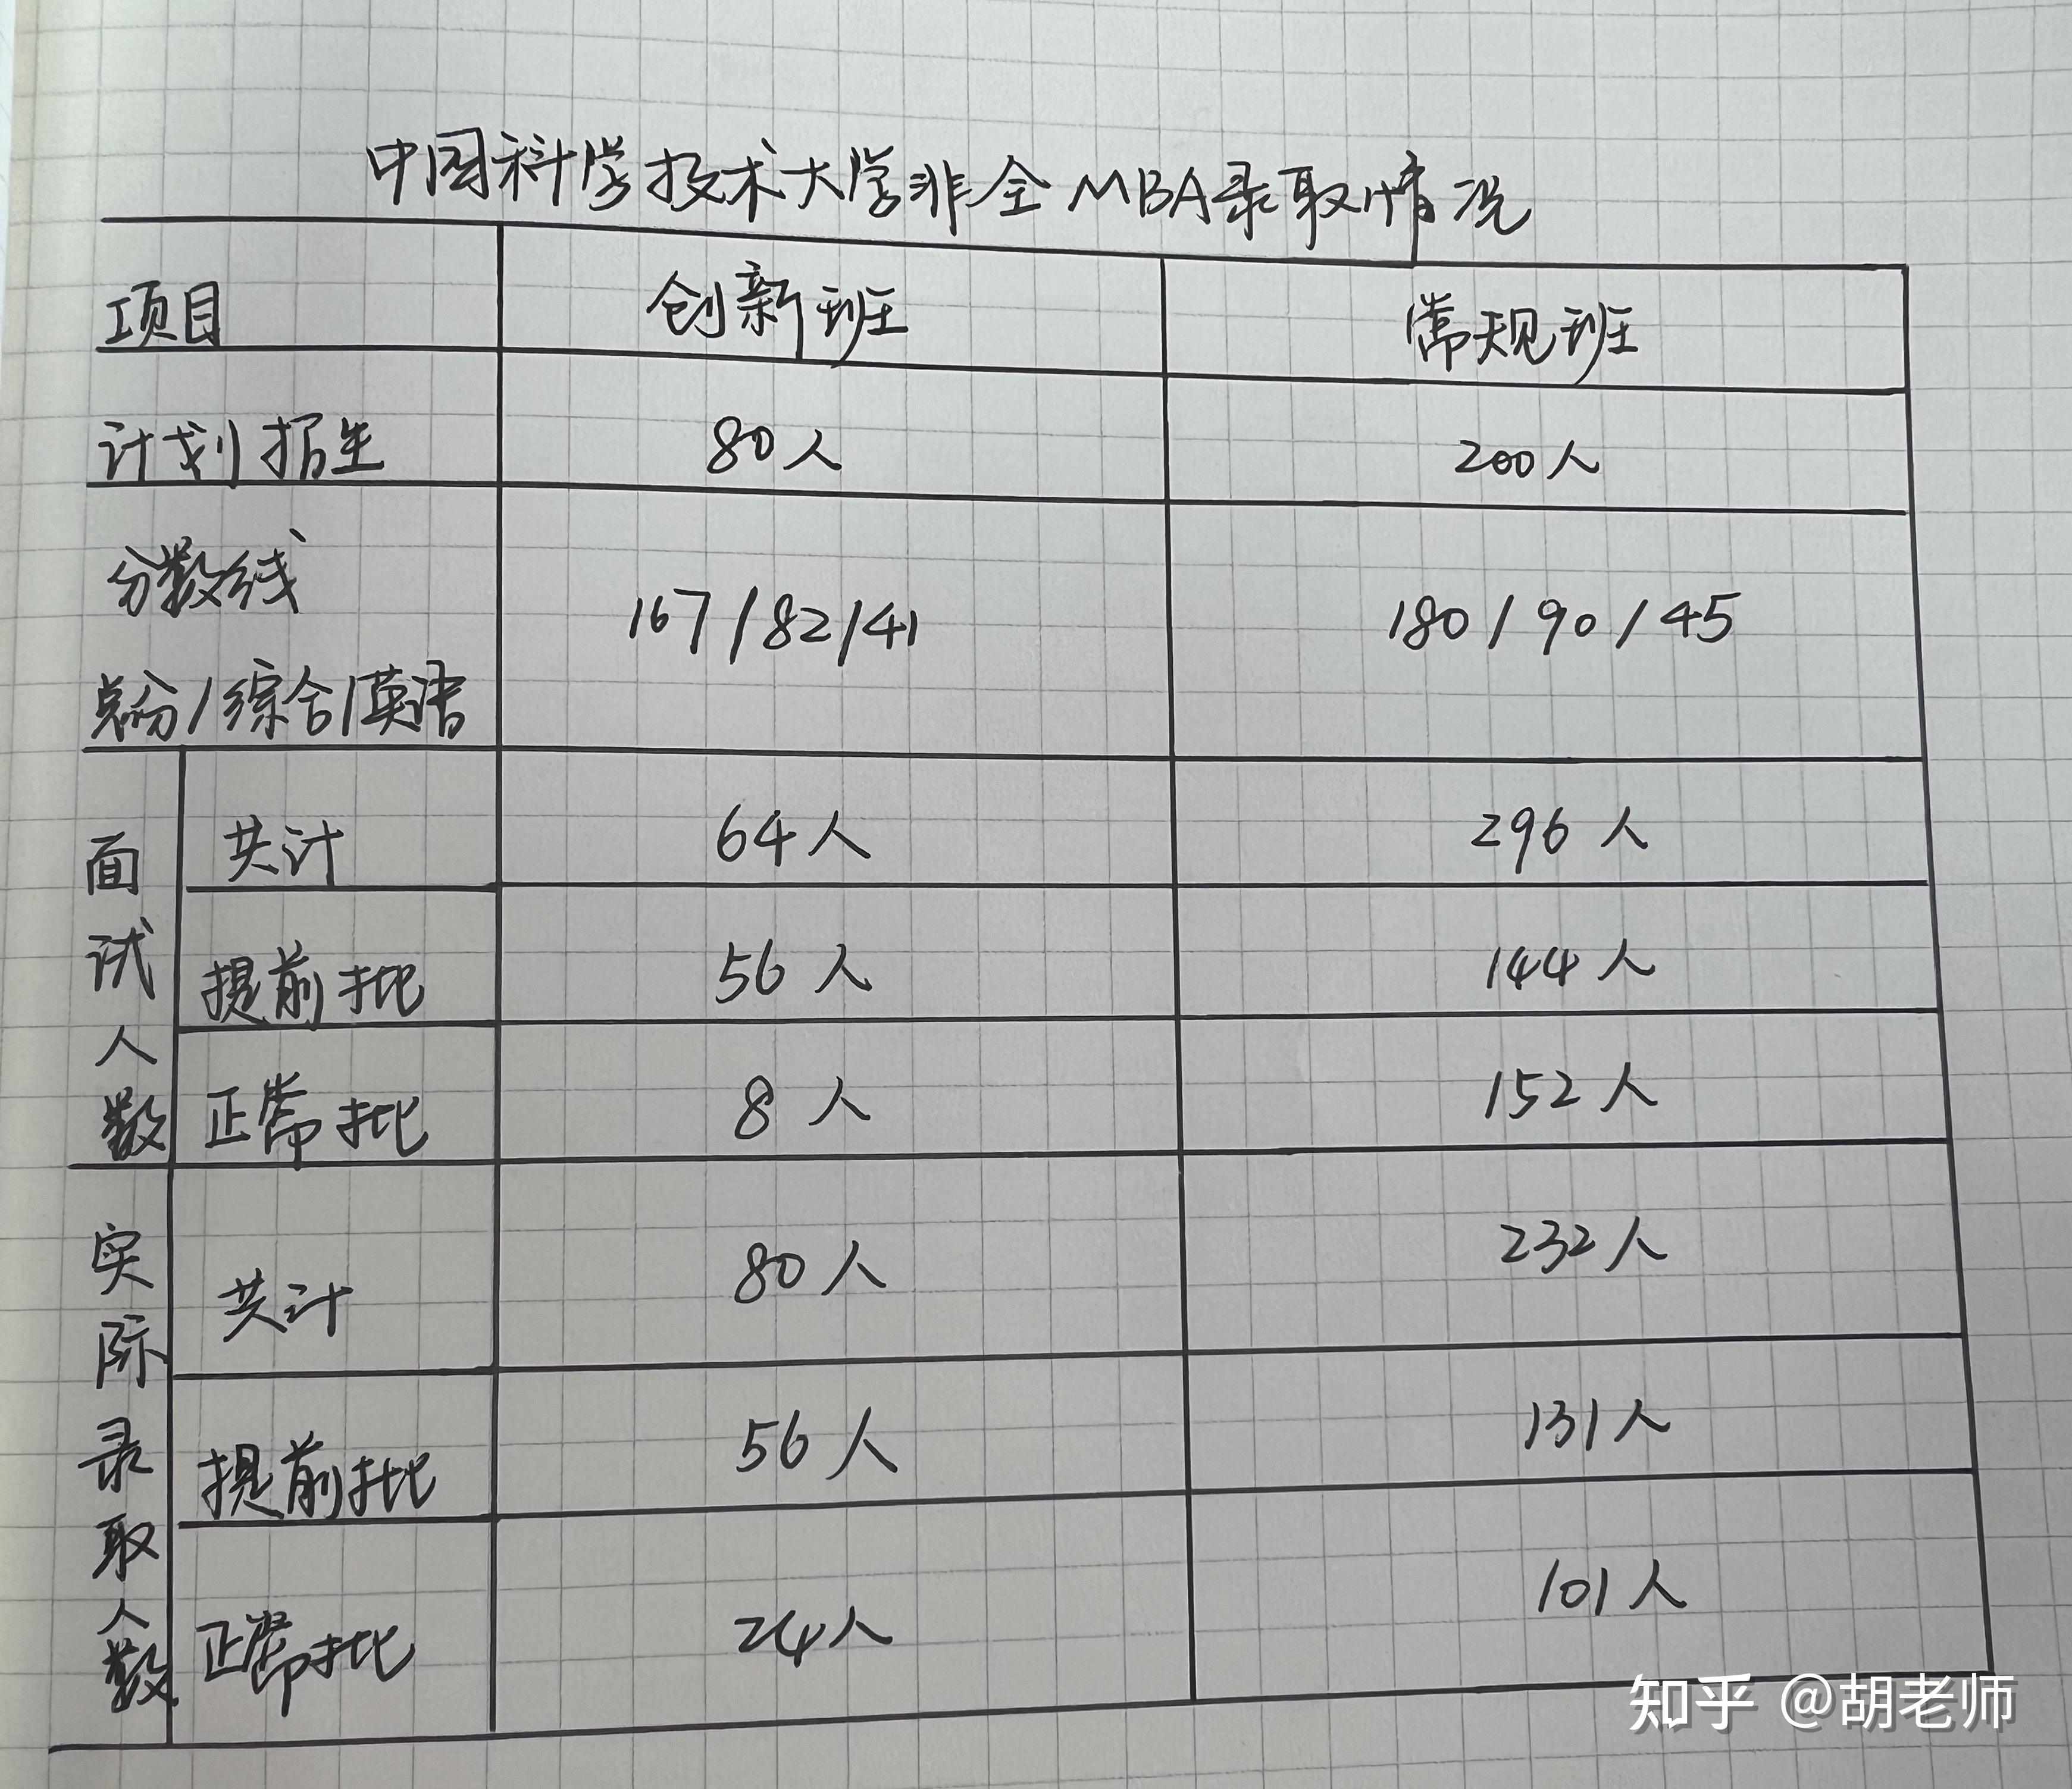 中国科学技术大学非全MBA录取情况
项目 创新班 常规班
计划招生 80人 200人
分数线
总分/综合/英语 167/82/41 180/90/45
面试人数 共计 64人 296人
提前批 56人 144人
正常批 8人 152人
实际录取人数 共计 80人 232人
提前批 56人 131人
正常批 24人 101人
知乎 @胡老师